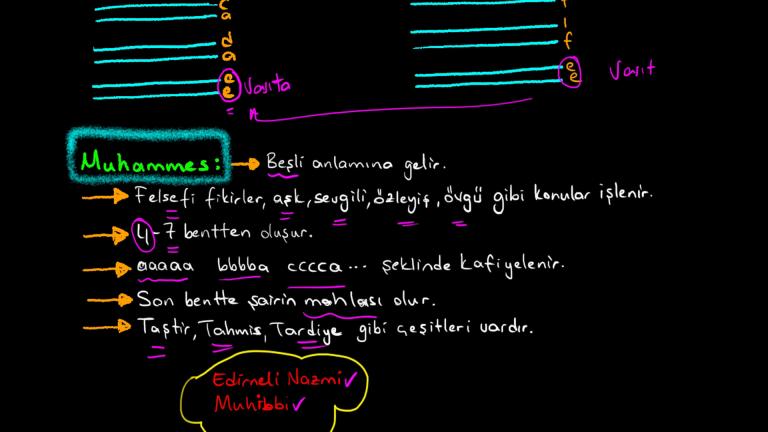 c
a
d
a
e
e
Vasıta
f
e
e
Vasıt
Muhammes: Beşli anlamına gelir.
Felsefi fikirler, aşk, sevgili, özleyiş, övgü gibi konular işlenir.
4-7 bentten oluşur.
aaaaa bbbba cccca... şeklinde kafiyelenir.
Son bentte şairin mahlası olur.
Taştir, Tahmis, Tardiye gibi çeşitleri vardır.
Edirneli Nazmi
Muhibbi